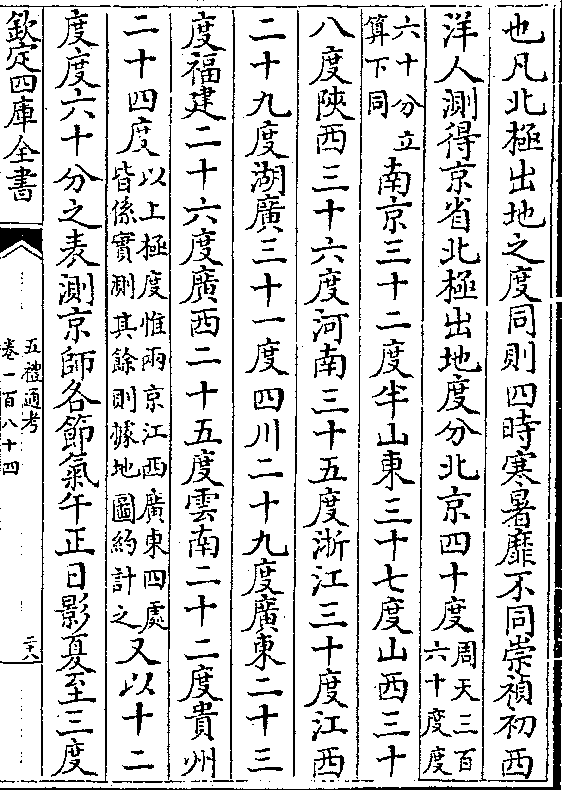 也凡北極出地之度同則四時寒暑靡不同崇禎初西
洋人測得京省北極出地度分北京四十度周天三百六十度度
六十分立算下同南京三十二度半山東三十七度山西三十
八度陝西三十六度河南三十五度浙江三十度江西
二十九度湖廣三十一度四川二十九度廣東二十三
度福建二十六度廣西二十五度雲南二十二度貴州
二十四度以上極度惟兩京江西廣東四處皆係實測其餘則據地圖約計之又以十二
度度六十分之表測京師各節氣午正日影夏至三度
欽定四庫全書
五禮通考
卷一百八十四
二十八